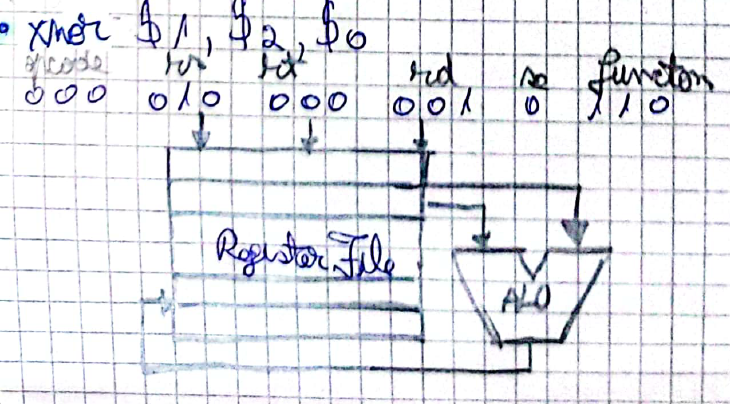 • xnor $1, $2, $0
opcode rs rt rd sa function
000 010 000 001 0 110
Register File
ALU